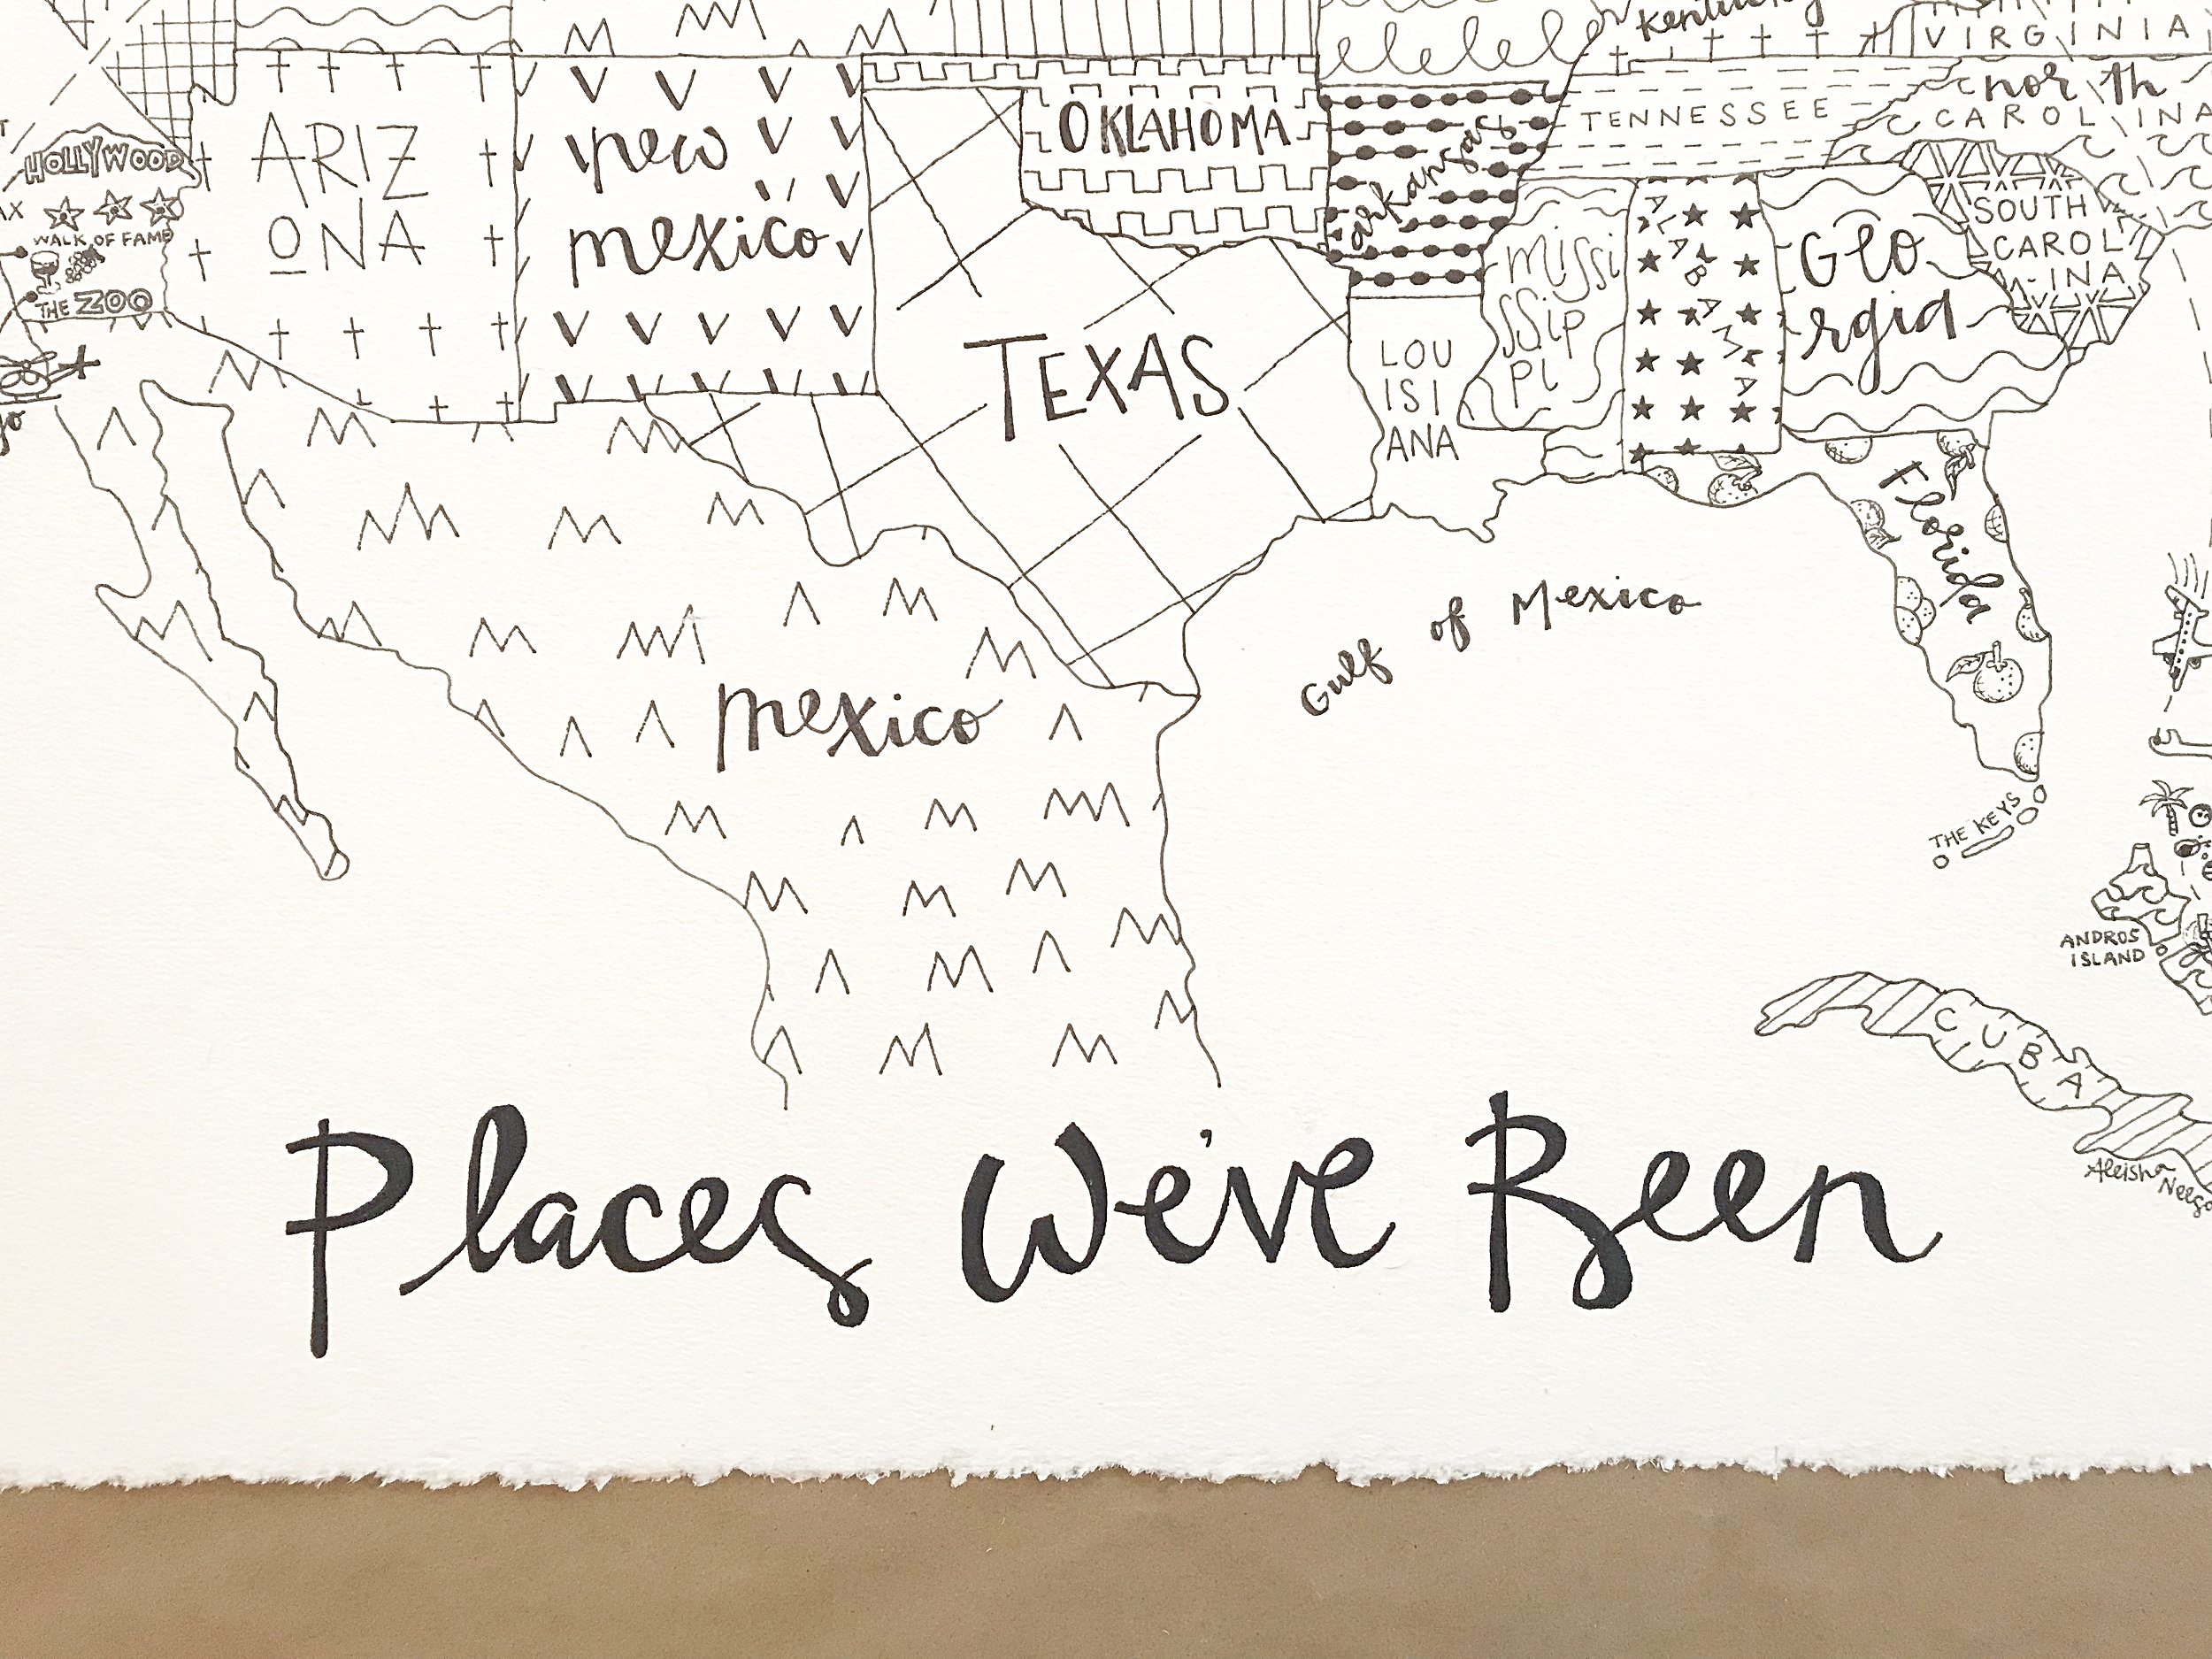 Kentucky
VIRGINIA
north
CAROLINA
TENNESSEE
OKLAHOMA
Arkansas
HOLLYWOOD
WALK OF FAME
THE ZOO
ARIZ
ONA
new
mexico
TEXAS
LOU
ISI
ANA
missi
ssip
pi
ALABAMA
Geo
rgia
SOUTH
CAROL
-INA
Florida
Gulf of Mexico
mexico
THE KEYS
ANDROS
ISLAND
CUBA
Aleisha
Places We've Been